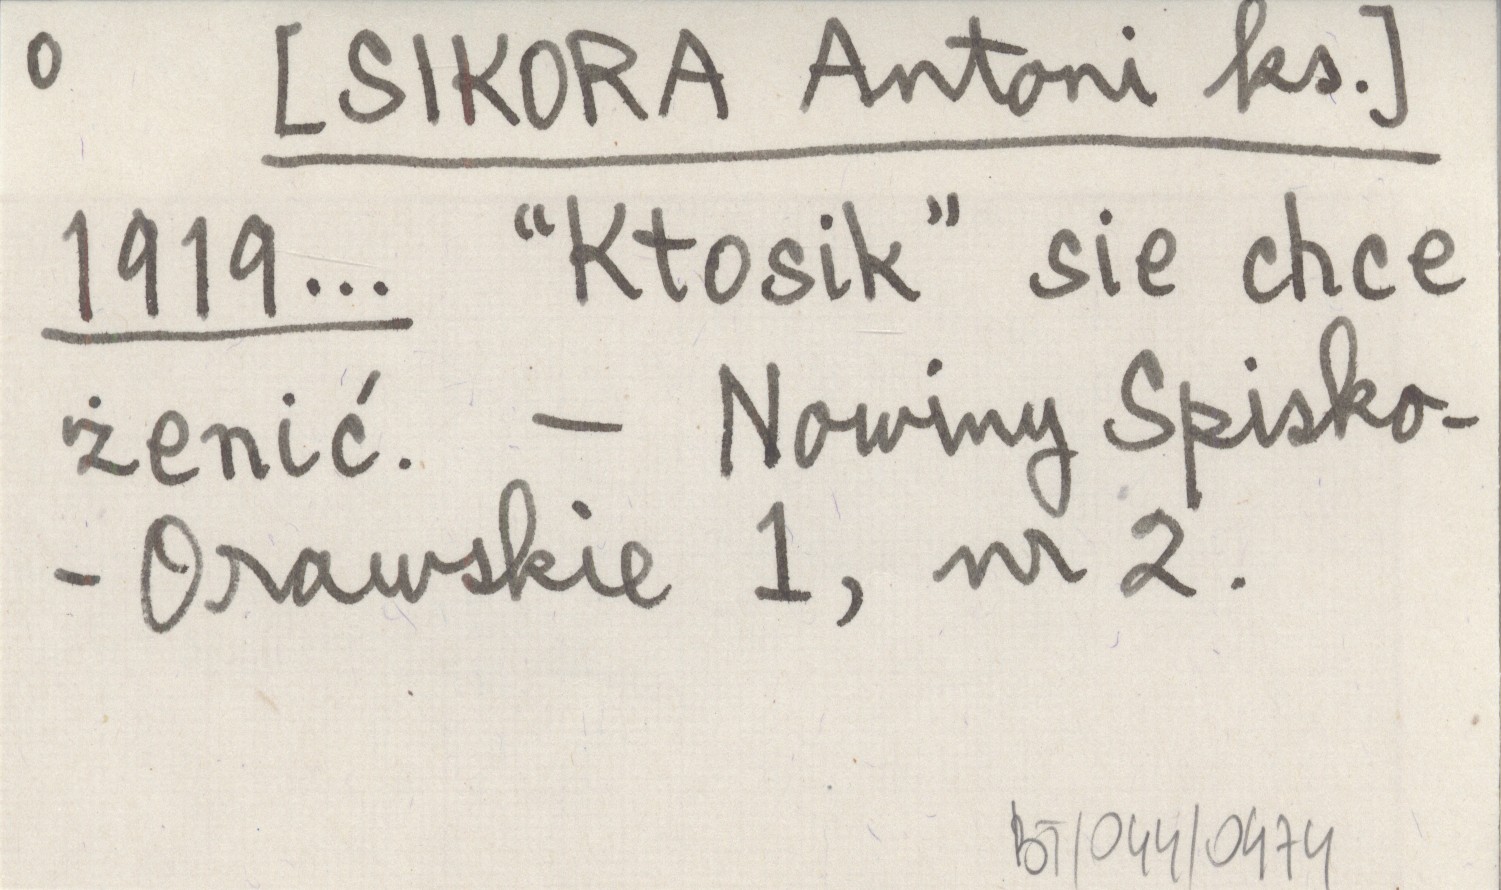 o [SIKORA Antoni ks.]
1919... “Ktosik” sie chce
żenić. – Nowiny Spisko-
- Orawskie 1, nr 2.
BT/044/0474